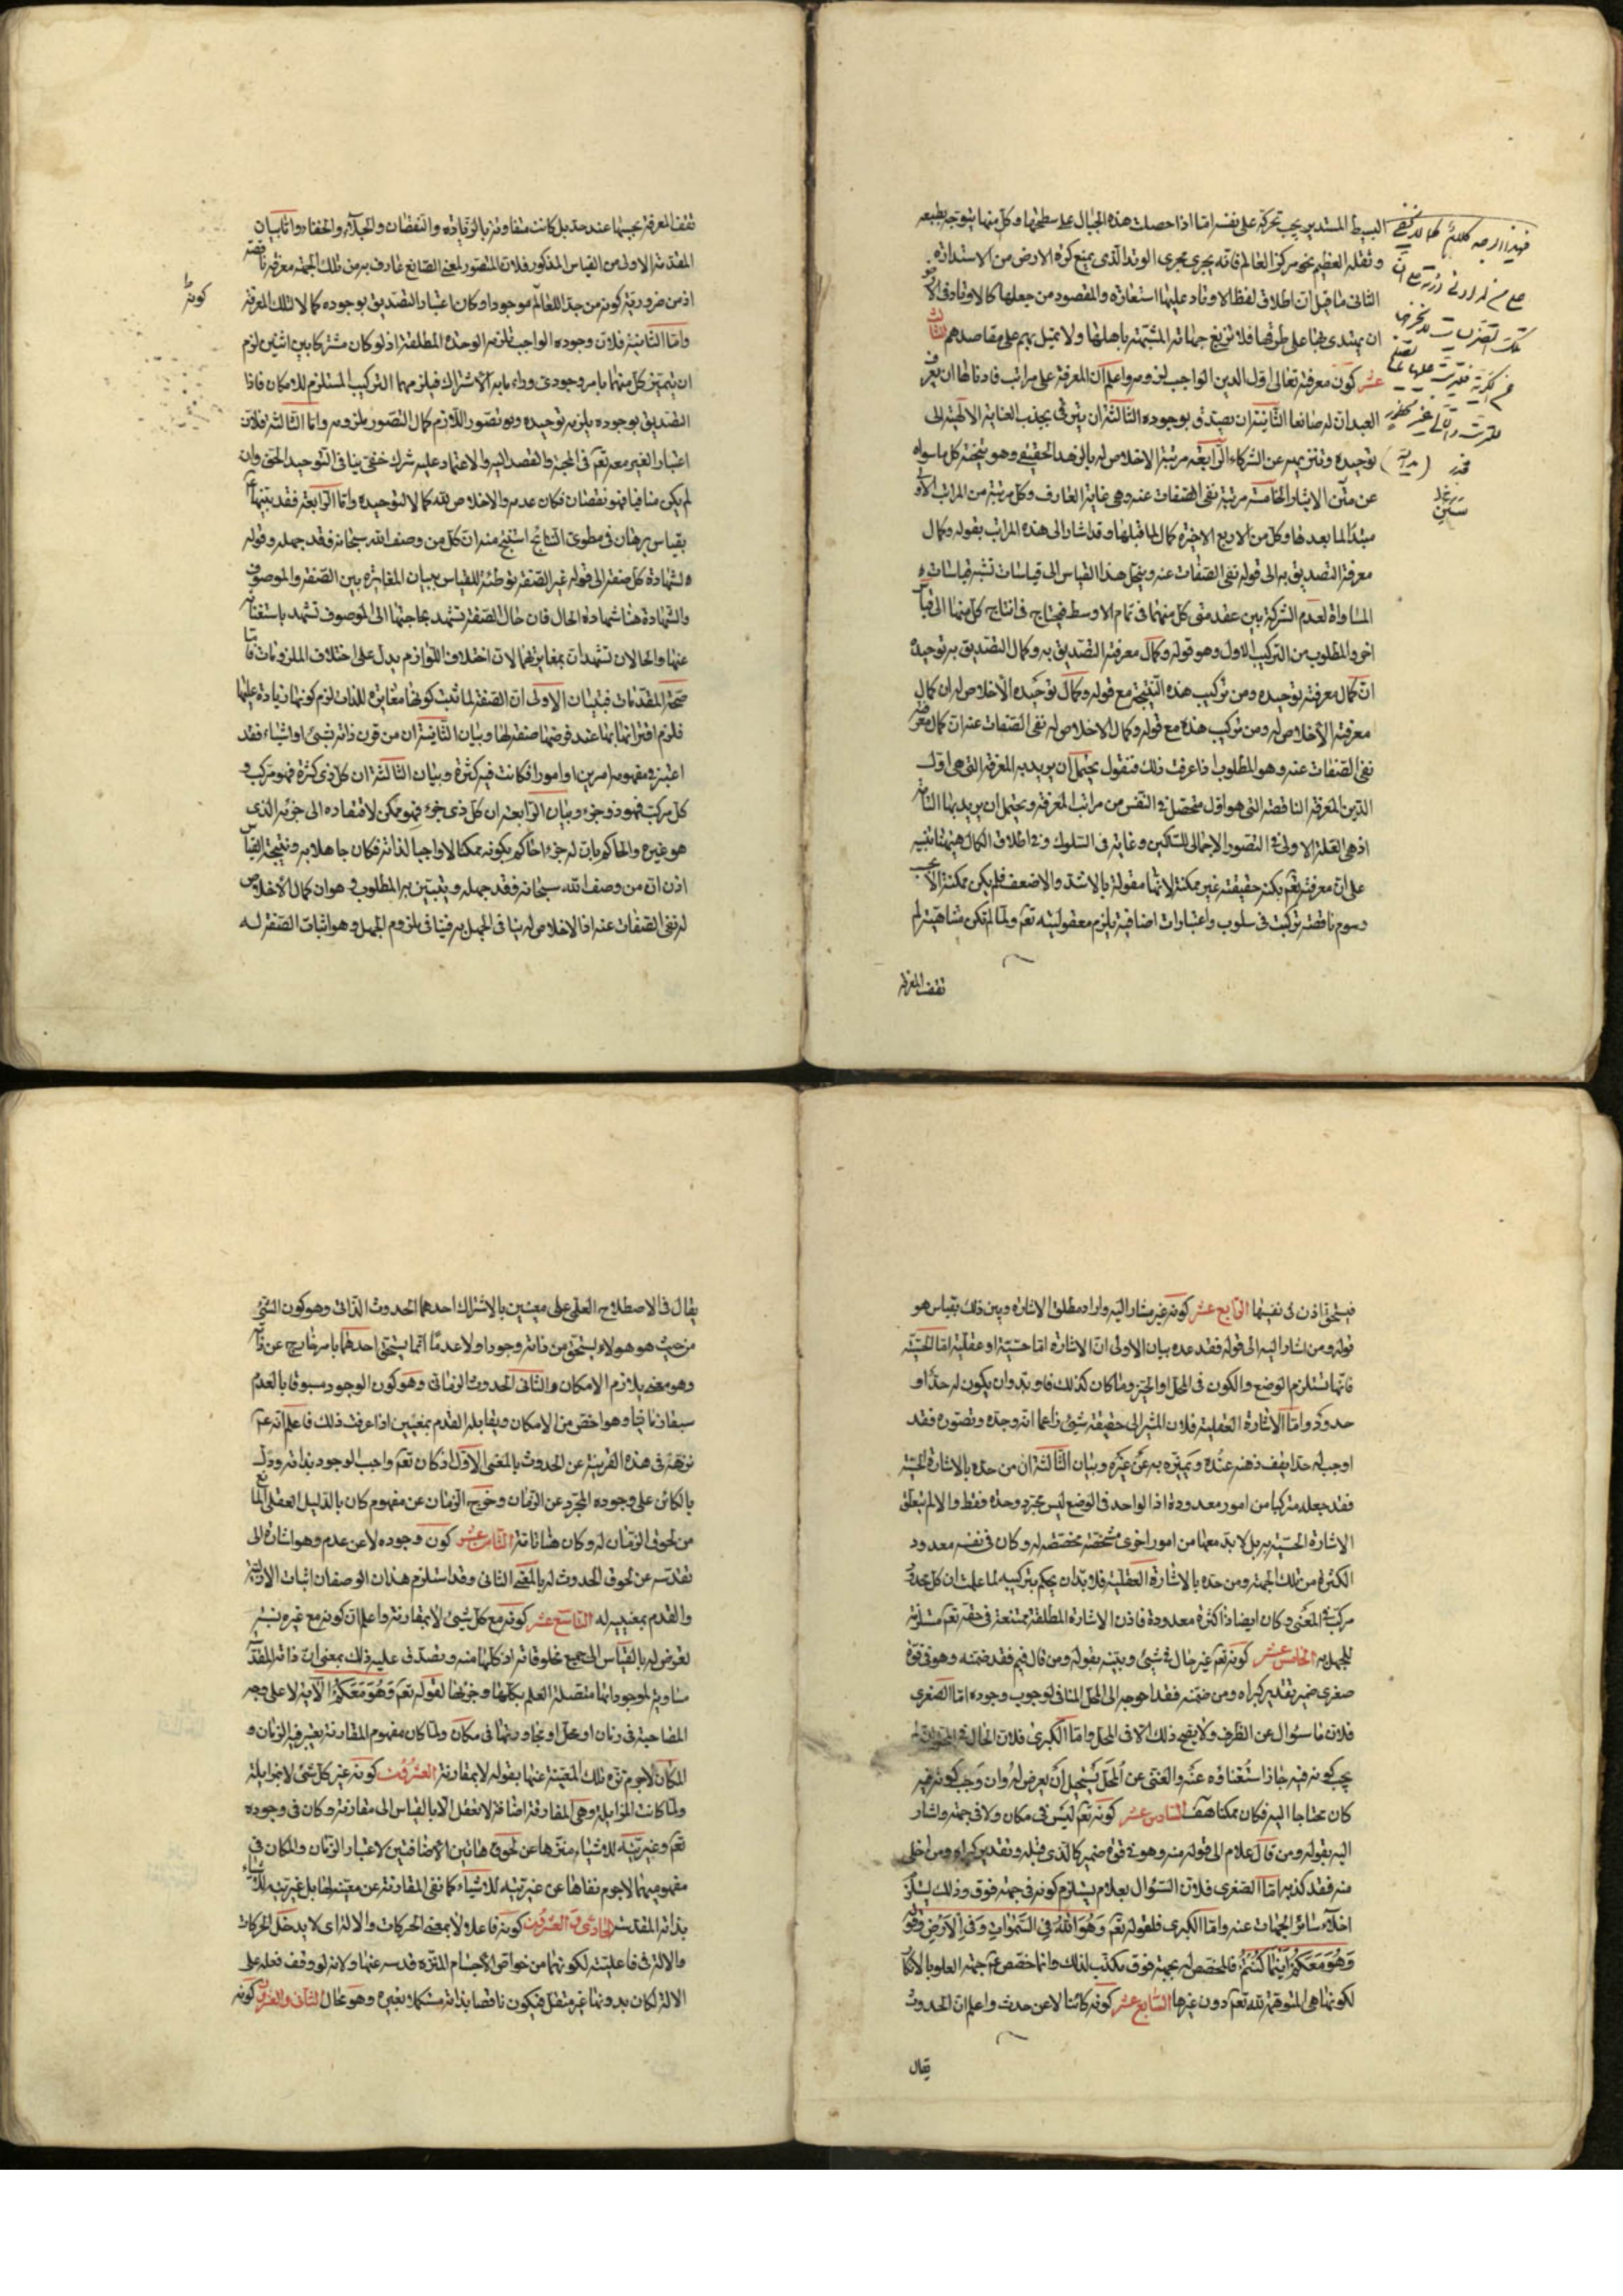 البسيط المستدير يجب تحركه على نفسه امّا اذا حصلت هذه الجبال على سطحها وكلّ منها يتوجه بطبعه
وثقله العظيم نحو مركز العالم فانه يجرى مجرى الوتد الّذى يمنع كرة الارض من الاستدارة
الثانى ما قيل ان اطلاق لفظ الاوتاد عليها استعارة والمقصود من جعلها كالاوتاد فى الارض
ان يهتدى بها على طرقها فلا تزيغ جهاتها المشتبهة باهلها ولا تميل بهم على مقاصدهم الثالث
عشر كون معرفته تعالى اوّل الدين الواجب لزومه واعلم ان المعرفة على مراتب فادناها ان يعرف
العبد ان له صانعا الثّانية ان يصدّق بوجوده الثّالثة ان يترقى بجذب العناية الالهيّة الى
توحيده وتنزيهه عن الشركاء الرّابعة مرتبة الاخلاص له بالزهد الحقيقى وهو تنحية كل ما سواه
عن سنن الايثار الخامسة مرتبة نفى الصّفات عنه وهى غاية العارف وكل مرتبة من المراتب الاول
مبدأ لما بعدها وكل من الاربع الاخيرة كمال لما قبلها وقد اشار الى هذه المراتب بقوله وكمال
معرفته التصديق به الى قوله نفى الصّفات عنه وينحل هذا القياس الى قياسات تشبه قياسات
المساواة لعدم الشركة بين عقد متى كل منهما فى تمام الاوسط فيحتاج فى انتاج كل منها الى قياس
اخر والمطلوب من التركيب الاول وهو قوله وكمال معرفته التصديق به وكمال التصديق به توحيده
ان كمال معرفته توحيده ومن تركيب هذه النتيجة مع قوله وكمال توحيده الاخلاص له ان كمال
معرفته الاخلاص له ومن تركيب هذه مع قوله وكمال الاخلاص له نفى الصّفات عنه ان كمال معرفته
نفى الصّفات عنه وهو المطلوب اذا عرفت ذلك فنقول يحتمل ان يريد به المعرفة التى هى اوّل
الدّين المعرفة الناقصة التى هو اوّل متحصل فى النّفس من مراتب المعرفة ويحتمل ان يريد بها التامّة
اذ هى العلّة الاولى فى التصور الاجمالى للسّالكين وغاية فى السّلوك وفى اطلاق الكمال هيهنا تنبيه
على انّ معرفته تعم بكنه حقيقته غير ممكنة لانها مقولة بالاشدّ والاضعف فلم يكن ممكنة الا بحسب
رسوم ناقصة تركبت فى سلوب واعتبارات اضافية يلزم معقوليته تعم ولما لم تكن متناهية لم
تقف المعرفة
تقف المعرفة بحسبها عند حدّ بل كانت متفاوتة بالزّيادة والنّقصان والجلاء والخفاء واما بيان
المقدمة الاولى من القياس المذكور فلان المتصور لمعنى الصّانع عارف به من تلك الجهة معرفة ناقصة
اذ من ضرورية كونه من جد اللعالم موجدا وكان اعتبار التصديق بوجوده كمالا لتلك المعرفة
وامّا الثّانية فلان وجوده الواجب تلزمه الوحدة المطلقة اذ لو كان مشتركا بين اثنين لزم
ان يتميّز كل منهما بامر وجودى وراء ما به الاشتراك فيلزمهما التركيب المستلزم للامكان فاذا
التصديق بوجوده يلزمه توحيده وبه تصور اللّازم كمال التصور بلزومه وامّا الثالثة فلان
اعتبار الغير معه تعم فى المحبة والقصد اليه والاعتماد عليه شرك خفى ينافى التوحيد الحق وان
لم يكن منافيا فهو نقصان فكان عدمه والاخلاص لله كمالا لتوحيده وامّا الرّابعة فقد بيّنها
بقياس برهان مطوى النتائج استنتج منه ان كل من وصف الله سبحانه فقد جهله وقوله
لشهادة كل صفة الى قوله غير الصّفة توطئة للقياس ببيان المغايرة بين الصّفة والموصوف
والشهادة هنا شهادة الحال فان حال الصّفة تشهد بحاجتها الى الموصوف تشهد باستغنائه
عنها والحالان تشهدان بمغايرتهما لان اختلاف اللوازم يدل على اختلاف الملزومات فامّا
صحّة المقدّمات فبيان الاولى ان الصّفة لما ثبت كونها مغايرة للذات لزم كونها زيادة عليها
فلزم اقترانها بها عند فرضها صفة لها وبيان الثّانية ان من قرن ذاته بشئ او اشياء فقد
اعتبر فى مفهومه امرين او امورا فكانت فيه كثرة وبيان الثّالثة ان كل ذى كثرة فهو مركب و
كل مركب فهو ذو جزء وبيان الرّابعة ان كل ذى جزء فهو ممكن لافتقاره الى جزئه الذى
هو غيره والحاكم بان له جزءا حاكم بكونه ممكنا لا واجبا لذاته فكان جاهلا به ونتيجة القياس
اذن ان من وصف الله سبحانه فقد جهله ويتبيّن به المطلوب وهو ان كمال الاخلاص
له نفى الصّفات عنه اذ الاخلاص له ينافى الجهل به فينافى ملزوم الجهل وهو اثبات الصّفة له
فيتحقق اذن نفيها الرّابع عشر كونه غير مشار اليه واراد مطلق الاشارة وبيّن ذلك بقياس هو
قوله ومن اشار اليه الى قوله فقد عده بيان الاولى ان الاشارة امّا حسيّة او عقليّة امّا الحسيّة
فانّها تستلزم الوضع والكون فى المحل او الحيّز وما كان كذلك فلا وبدّ وان يكون له حدّ او
حدود وامّا الاشارة العقلية فلان المشير الى حقيقة شئ زاعما انه وجده وتصوره فقد
اوجب له حدا يقف ذهنه عنده ويميزه به عن غيره وبيان الثّالثة ان من حدّه بالاشارة الحسيّة
فقد جعله مركبا من امور معدودة اذ الواحد فى الوضع ليس مجرد وحدة فقط والا لم تتعلّق
الاشارة الحسيّة به بل لا بد معها من امور اخرى مشخصة مخصصة له وكان فى نفسه معدود
الكثرة من تلك الجهة ومن حدّه بالاشارة العقلية فلا بدّ ان يحكم بتركيبه لما علمت ان كل محدود
مركب فى المعنى وكان ايضا ذا كثرة معدودة فاذن الاشارة المطلقة ممتنعة فى حقه تعم مستلزمة
للجهل به الخامس عشر كونه تعم غير حال فى شئ وبيّنه بقوله ومن قال فيم فقد ضمنه وهو فى قوة
صغرى ضمير تقدير كبراه ومن ضمنه فقد احوجه الى المحل المنافى لوجوب وجوده امّا الصغرى
فلان ما سؤال عن الظرف ولا يصح ذلك الا فى المحل وامّا الكبرى فلان الحال فى
يجب كونه فيه جاز استغناؤه عنه والغنى عن المحل يستحيل ان يعرض له وان وجب كونه فيه
كان محتاجا اليه فكان ممكنا هف السّادس عشر كونه تعم ليس فى مكان ولا فى جهة واشار
اليه بقوله ومن قال علام الى قوله منه وهو فى قوة ضمير كالذى قبله وتقدير كبراه ومن اخلى
منه فقد كذبه امّا الصغرى فلان السّؤال بعلام يستلزم كونه فى جهة فوق وذلك يستلزم
اخلاء سائر الجهات عنه وامّا الكبرى فلقوله تعم وَهُوَ اللهُ فِى السَّمٰوَاتِ وَفِى الْاَرْضِ وقوله
وَهُوَ مَعَكُمْ اَيْنَمَا كُنْتُمْ فالمخصص له بجهة فوق مكذب لذلك وانما خصّص ع جهة العلو بالانكار
لكونها هى المتوهمة لله تعم دون غيرها السّابع عشر كونه كائنا لا عن حدث واعلم ان الحدوث
يقال
يقال فى الاصطلاح العلمى على معنيين بالاشتراك احدهما الحدوث الذّاتى وهو كون الشّئ
من حيث هو هو لا يستحق من ذاته وجودا ولا عدما انما يستحق احدهما بامر خارج عن ذاته
وهو معنى يلازم الامكان والثّانى الحدوث الزمانى وهو كون الوجود مسبوقا بالعدم
سبقا زمانيّا وهو اخصّ من الامكان ويقابله القدم بمعنيين اذا عرفت ذلك فاعلم انه ع
نزّهه فى هذه القرينة عن الحدوث بالمعنى الاوّل اذ كان تعم واجب الوجود بذاته ودلّ
بالكائن على وجوده المجرّد عن الزمان وخروج الزمان عن مفهوم كان بالدّليل العقلى المانع
من لحوق الزمان له وكان هنا تامّة الثّامن عشر كون وجوده لا عن عدم وهو اشارة الى
تقدسه عن لحوق الحدوث له بالمعنى الثانى وقد استلزم هذان الوصفان اثبات الازليّة
والقدم بمعنييه له التّاسع عشر كونه مع كل شئ لا بمقارنة واعلم ان كونه مع غيره نسبة
تعرض له بالقياس الى جميع مخلوقاته اذ كلها منه ويصدق عليه ذلك بمعنى ان ذاته المقدسة
مساوية لموجوداتها متصلة العلم بكلّها وجزئيها لقوله تعم وَهُوَ مَعَكُمْ الاية لا على وجه
المصاحبة فى زمان او محل او تجاورتها فى مكان ولما كان مفهوم المقارنة يعتبر فيه الزمان و
المكان لا جرم نزّه تلك المعيّة عنها بقوله لا بمقارنة العشرون كونه غير كل شئ لا بمزايلة
ولما كانت المزايلة وهى المفارقة اضافة لا تعقل الا بالقياس الى مقارنة وكان فى وجوده
تعم وغيريّته للاشياء منزّها عن لحوق هاتين الاضافتين لاعتبار الزمان والمكان فى
مفهوميهما لا جرم نفاها عن غيريّته للاشياء كما نفى المقارنة عن معيّته لها بل غيريّته للاشياء
بذاته المقدسة الحادى والعشرون كونه فاعلا لا بمعنى الحركات والالة اى لا يدخل الحركات
والالة فى فاعليته لكونها من خواصّ الاجسام المنزّه قدسه عنها ولانه لو وقف فعله على
الالة لكان بدونها غير مستقل فيكون ناقصا بذاته مستكملا بغيره وهو محال الثانى والعشرون كونه